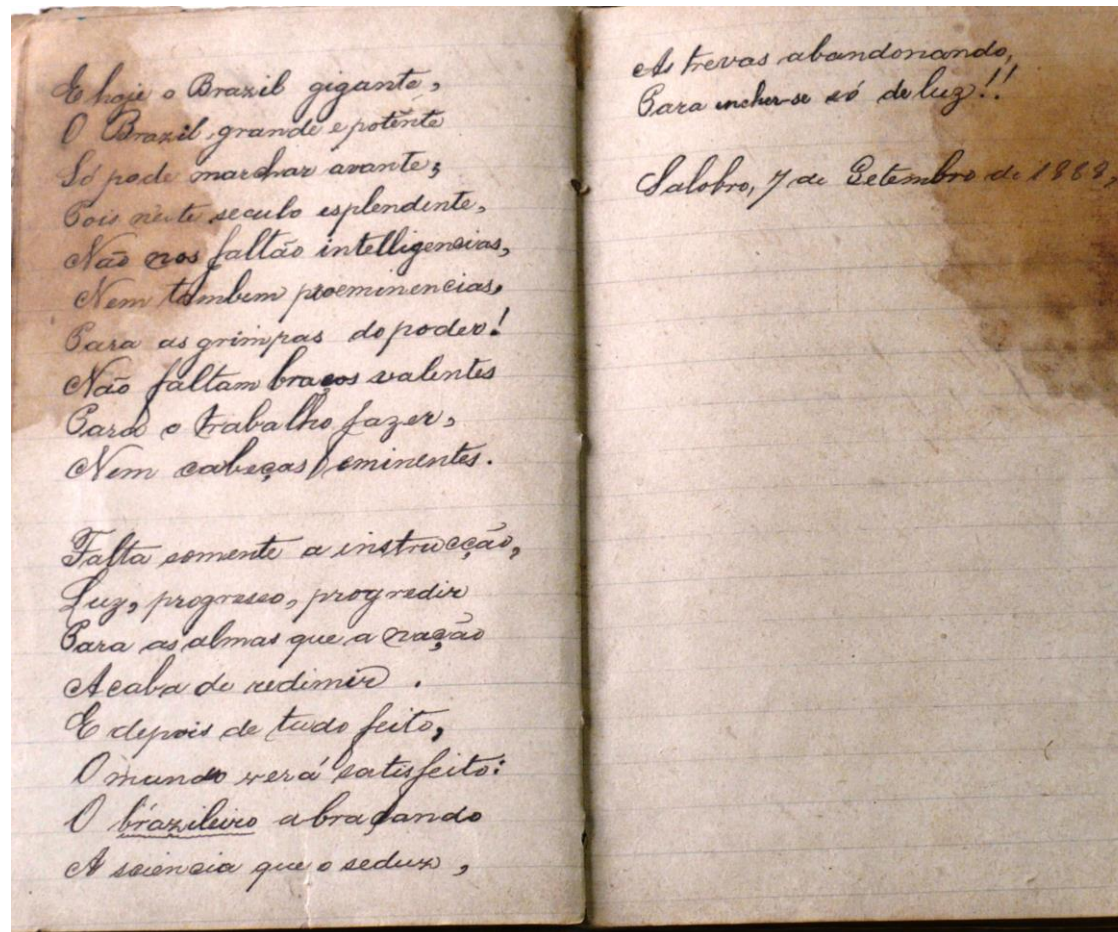 E hoje o Brazil gigante,
O Brazil, grande e potente
Só pode marchar avante;
Pois neste seculo esplendente,
Não nos faltão intelligencias,
Nem tambem proeminencias,
Para as grimpas do poder!
Não faltam braços valentes
Para o trabalho fazer,
Nem cabeças eminentes.
Falta somente a instrucção,
Luz, progresso, progredir
Para as almas que a nação
Acaba de redimir.
E depois de tudo feito,
O mundo verá satisfeito:
O brazileiro abraçando
A sciencia que o seduz,
As trevas abandonando,
Para encher-se só de luz!!
Salobro, 7 de Setembro de 1888,